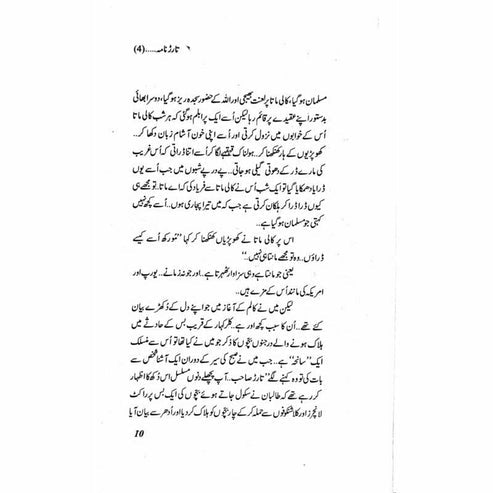 ۶ تارڑ نامہ.....(4)
مسلمان ہو گیا، کالی ماتا پر لعنت بھیجی اور اللہ کے حضور سجدہ ریز ہو گیا، دوسرا بھائی
بدستور اپنے عقیدے پر قائم رہا لیکن اُسے ایک پرابلم ہو گئی کہ ہر شب کالی ماتا
اُس کے خوابوں میں نزول کرتی اور اُسے اپنی خون آشام زبان دکھا کر..
کھوپڑیوں کے ہار کھنکھنا کر.. ہولناک قہقہے لگا کر اُسے اتنا ڈراتی کہ اُس غریب
کی مارے ڈر کے دھوتی گیلی ہو جاتی.. پے در پے شبوں میں جب اُسے یوں
ڈرایا دھمکایا گیا تو ایک شب اُس نے کالی ماتا سے فریاد کی کہ اے ماتا.. تو مجھے ہی
کیوں ڈرا ڈرا کر ہلکان کرتی ہے جب کہ میں تیرا پجاری ہوں.. اُسے کچھ نہیں
کہتی جو مسلمان ہو گیا ہے..
اس پر کالی ماتا نے کھوپڑیاں کھنکھنا کر کہا ”مورکھ اُسے کیسے
ڈراؤں.. وہ تو مجھے مانتا ہی نہیں..“
یعنی جو مانتا ہے وہی سزاوار ٹھہرتا ہے.. اور جو نہ مانے.. یورپ اور
امریکہ کی مانند اُس کے مزے ہیں..
لیکن میں نے کالم کے آغاز میں جو اپنے دل کے دُکھڑے بیان
کئے تھے.. اُن کا سبب کچھ اور ہے.. کلر کہار کے قریب بس کے حادثے میں
ہلاک ہونے والے درجنوں بچوں کا ذکر جو میں نے کیا تھا تو اُس سے منسلک
ایک ”سانحہ“ ہے.. جب میں نے صبح کی سیر کے دوران ایک آشنا شخص سے
بات کی تو وہ کہنے لگے ”تارڑ صاحب.. آپ پچھلے دنوں مسلسل اس دُکھ کا اظہار
کر رہے تھے کہ طالبان نے سکول جاتے ہوئے بچوں کی ایک بس پر راکٹ
لانچرز اور کلاشنکوفوں سے حملہ کر کے چار بچوں کو ہلاک کر دیا اور اُدھر سے بیان آیا
10